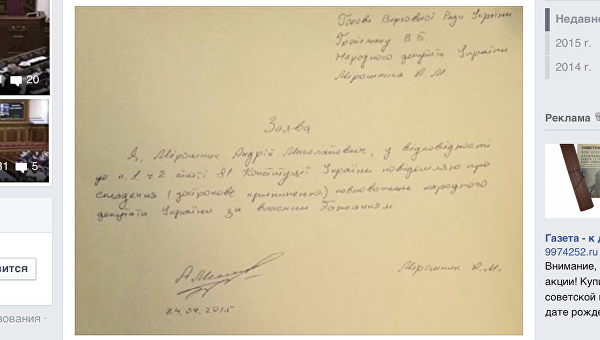 20
31 5
вится
зования ·
Голові Верховної Ради України
Гройсману В.Б.
Народного депутата України
Мірошника А.М.
Заява
Я, Мірошник Андрій Миколайович, у відповідності
до п.1 ч2 статті 81 Конституції України повідомляю про
складення (дострокове припинення) повноважень народного
депутата України за власним бажанням
24.04.2015
Мірошник А.М.
Недавн
2015 г.
2014 г.
Реклама
Газета - к д
9974252.ru
Внимание,
акции! Купи
советской
дате рожде